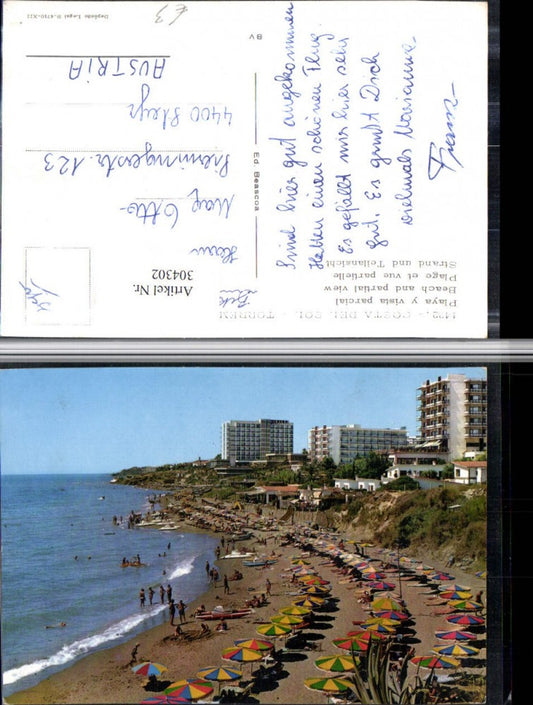 1429.- COSTA DEL SOL - TORREM
Playa y vista parcial
Beach and partial view
Plage et vue partielle
Strand und Teilansicht
Sind hier gut angekommen
Haben einen schönen Flug.
Es gefällt mir hier sehr
gut. Es grüßt Dich
vielmals Marianne
Franz
Ed. Beascoa
BV
Artikel Nr.
304302
Herrn
Mag Otto
123
4400 Steyr
AUSTRIA
Deposito Legal B.
£3